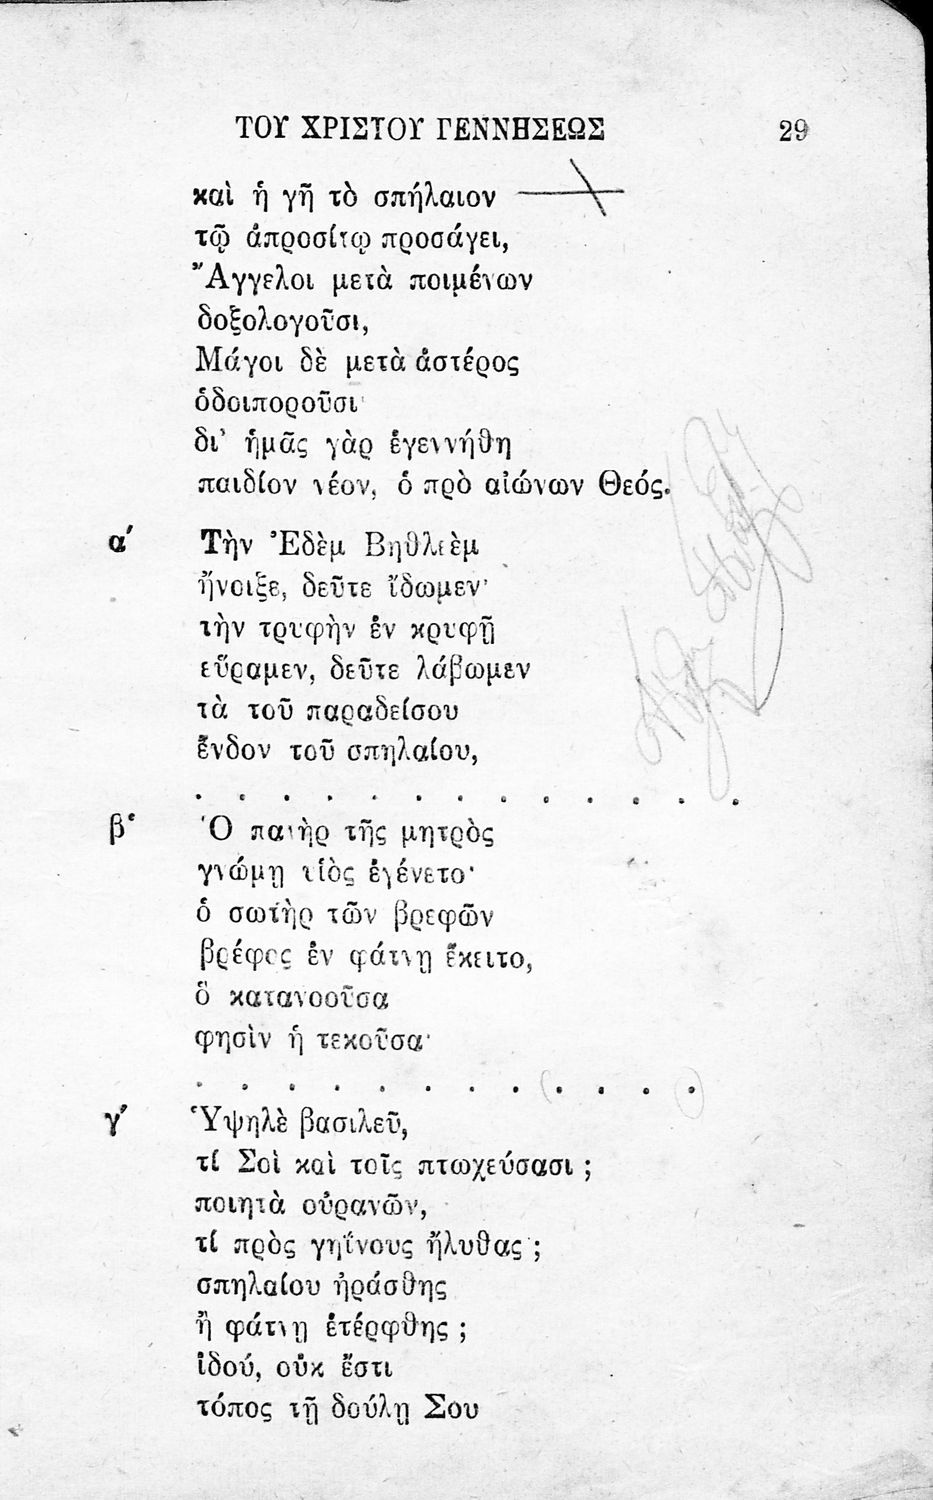 ΤΟΥ ΧΡΙΣΤΟΥ ΓΕΝΝΗΣΕΩΣ 29
καὶ ἡ γῆ τὸ σπήλαιον
τῷ ἀπροσίτῳ προσάγει,
Ἄγγελοι μετὰ ποιμένων
δοξολογοῦσι,
Μάγοι δὲ μετὰ ἀστέρος
ὁδοιποροῦσι·
δι' ἡμᾶς γὰρ ἐγεννήθη
παιδίον νέον, ὁ πρὸ αἰώνων Θεός.
α΄ Τὴν Ἐδὲμ Βηθλεὲμ
ἤνοιξε, δεῦτε ἴδωμεν·
τὴν τρυφὴν ἐν κρυφῇ
εὕραμεν, δεῦτε λάβωμεν
τὰ τοῦ παραδείσου
ἔνδον τοῦ σπηλαίου,
. . . . . . . . . . . . .
β΄ Ὁ πατὴρ τῆς μητρὸς
γνώμῃ υἱὸς ἐγένετο·
ὁ σωτὴρ τῶν βρεφῶν
βρέφος ἐν φάτνῃ ἔκειτο,
ὃ κατανοοῦσα
φησὶν ἡ τεκοῦσα·
. . . . . . . . . . . .
γ΄ Ὑψηλὲ βασιλεῦ,
τί Σοὶ καὶ τοῖς πτωχεύσασι ;
ποιητὰ οὐρανῶν,
τί πρὸς γηΐνους ἤλυθας ;
σπηλαίου ἠράσθης
ἢ φάτνῃ ἐτέρφθης ;
ἰδού, οὐκ ἔστι
τόπος τῇ δούλῃ Σου